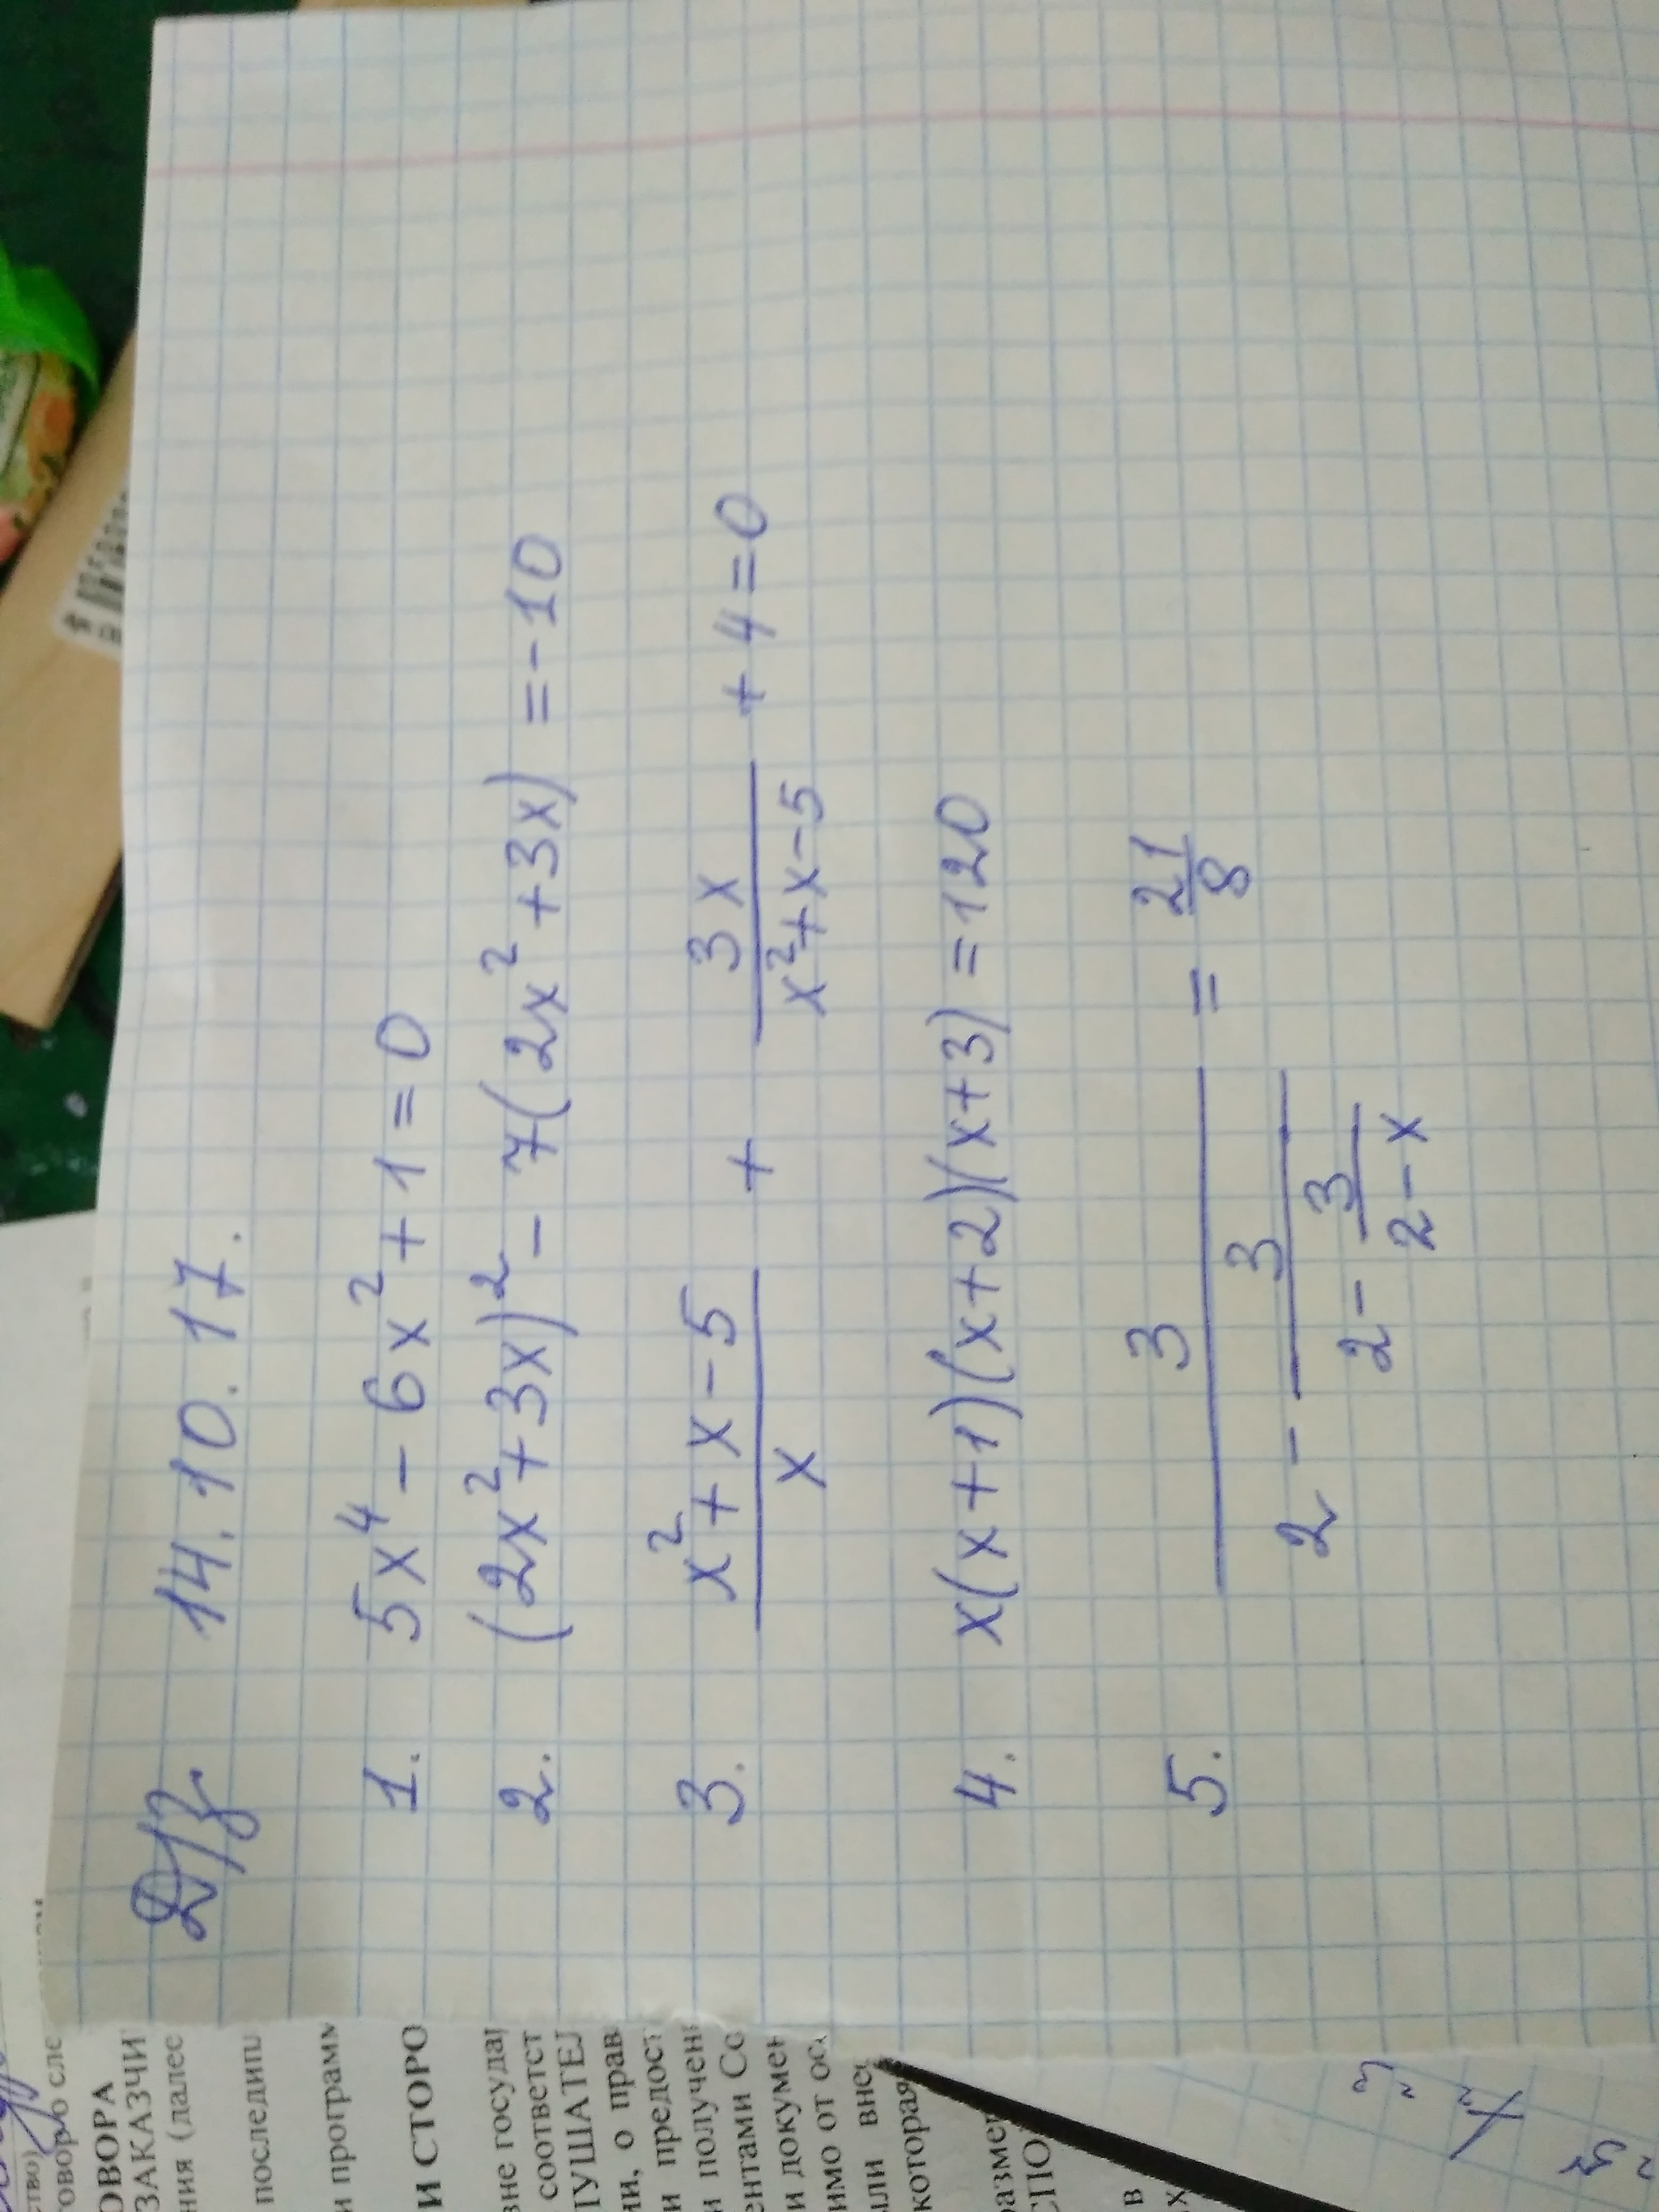 Д/з. 14.10.17.
1. 5x⁴ - 6x² + 1 = 0
2. (2x² + 3x)² - 7(2x² + 3x) = -10
3. (x² + x - 5)/x + 3x/(x² + x - 5) + 4 = 0
4. x(x+1)(x+2)(x+3) = 120
5. 3/(2 - 3/(2 - 3/(2 - x))) = 21/8
ОВОРА
ЗАКАЗЧИ
ния (далее
последни
и программ
И СТОРО
вне госуда
соответст
и, о прав
и предост
и получен
ентами Со
и докумен
имо от ос
или
которая
в